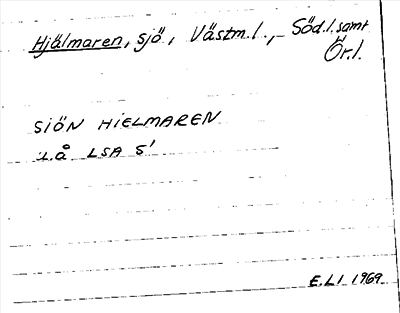 Hjälmaren, sjö, Västm.l., Söd.l. samt
Ör.l.
SIÖN HIELMAREN
u.å LSA S1
E.LI 1969